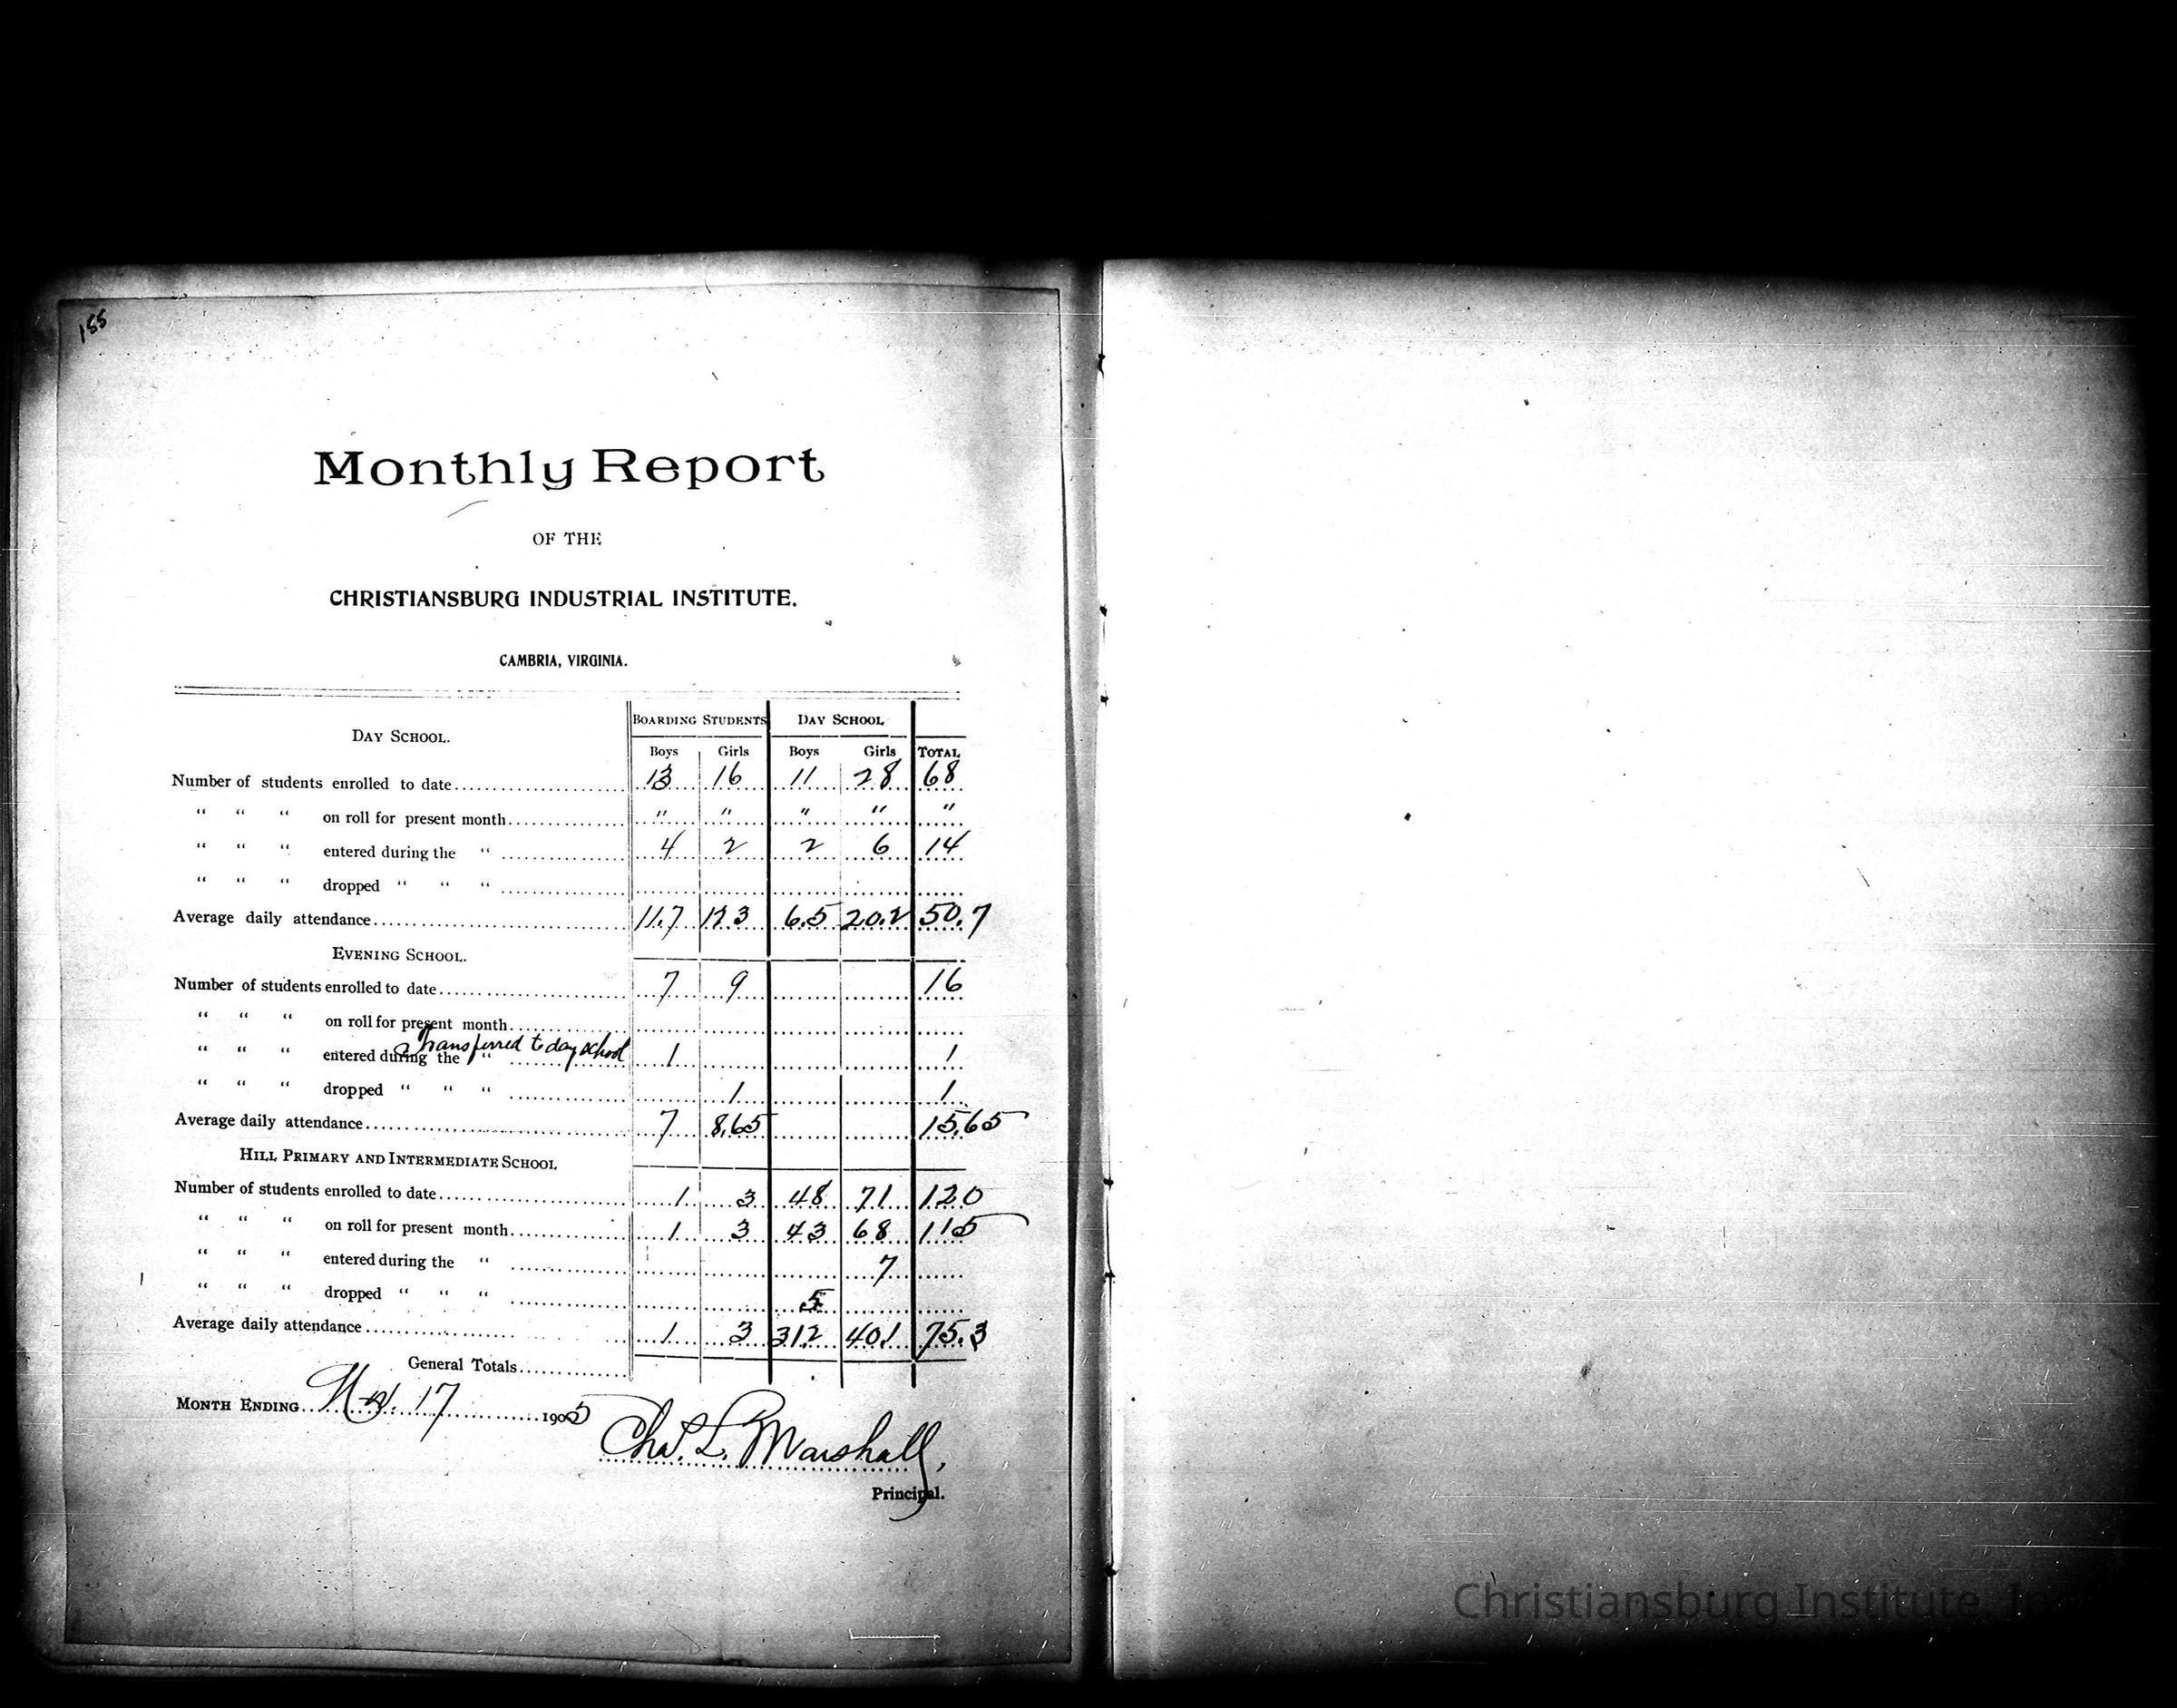 155
Monthly Report
OF THE
CHRISTIANSBURG INDUSTRIAL INSTITUTE.
CAMBRIA, VIRGINIA.
DAY SCHOOL. BOARDING STUDENTS DAY SCHOOL
Boys Girls Boys Girls TOTAL
Number of students enrolled to date 13 16 11 28 68
" " " on roll for present month " " " " "
" " " entered during the " 4 2 2 6 14
" " " dropped " " "
Average daily attendance 11.7 12.3 6.5 20.2 50.7
EVENING SCHOOL.
Number of students enrolled to date 7 9 16
" " " on roll for present month
2 transferred to day school
" " " entered during the " 1 1
" " " dropped " " " 1 1
Average daily attendance 7 8.65 15.65
HILL PRIMARY AND INTERMEDIATE SCHOOL
Number of students enrolled to date 1 3 48 71 120
" " " on roll for present month 1 3 43 68 115
" " " entered during the " 7
" " " dropped " " " 5
Average daily attendance 1 3 31.2 40.1 75.3
General Totals
MONTH ENDING 17 1905
Chas. L. Marshall,
Principal.
Christiansburg Institute, Inc